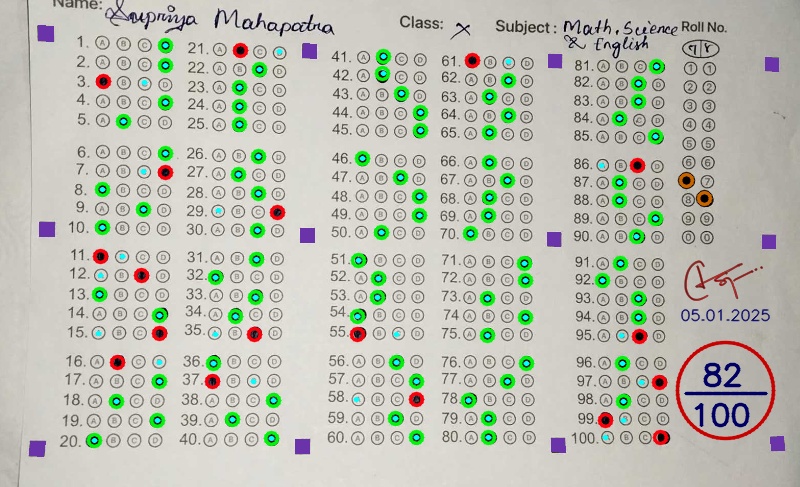 Name: Supriya Mahapatra
Class: X
Subject: Math, Science & English
Roll No.
९ ४
1. A B C
2. A B C
3. B D
4. A B C
5. A C D
6. A B C
7. A B
8. B C D
9. A B D
10. B C D
11. C D
12. B D
13. B C D
14. A B C
15. B C
16. A C
17. A B C
18. A C D
19. A B C
20. B C D
21. A C
22. A B D
23. A C D
24. A C D
25. A C D
26. A B D
27. A C D
28. A B D
29. B C
30. A B D
31. A B D
32. B C D
33. A B D
34. A C D
35. B D
36. B C D
37. B D
38. A B C
39. A C D
40. A B C
41. A C D
42. A C D
43. A B D
44. A B C
45. A B C
46. B C D
47. A B D
48. A B C
49. A B C
50. A C D
51. B C D
52. A C D
53. A C D
54. B C D
55. B D
56. A B D
57. A B C
58. B C
59. A B D
60. A B C
61. B D
62. A B D
63. A C D
64. A B D
65. A C D
66. A C D
67. A B D
68. A C D
69. A C D
70. B C D
71. A B C
72. A B C
73. A C D
74. A B C
75. A C D
76. A B C
77. A B D
78. B C D
79. A C D
80. A C D
81. A B C
82. A B D
83. A B D
84. A C D
85. A B C
86. B D
87. A C D
88. A C D
89. A B C
90. A B D
91. A C D
92. B C D
93. A B D
94. A B D
95. A D
96. A C D
97. A B
98. A C D
99. C D
100. B C
1 1
2 2
3 3
4 4
5 5
6 6
7
8
9 9
0 0
05.01.2025
82
100